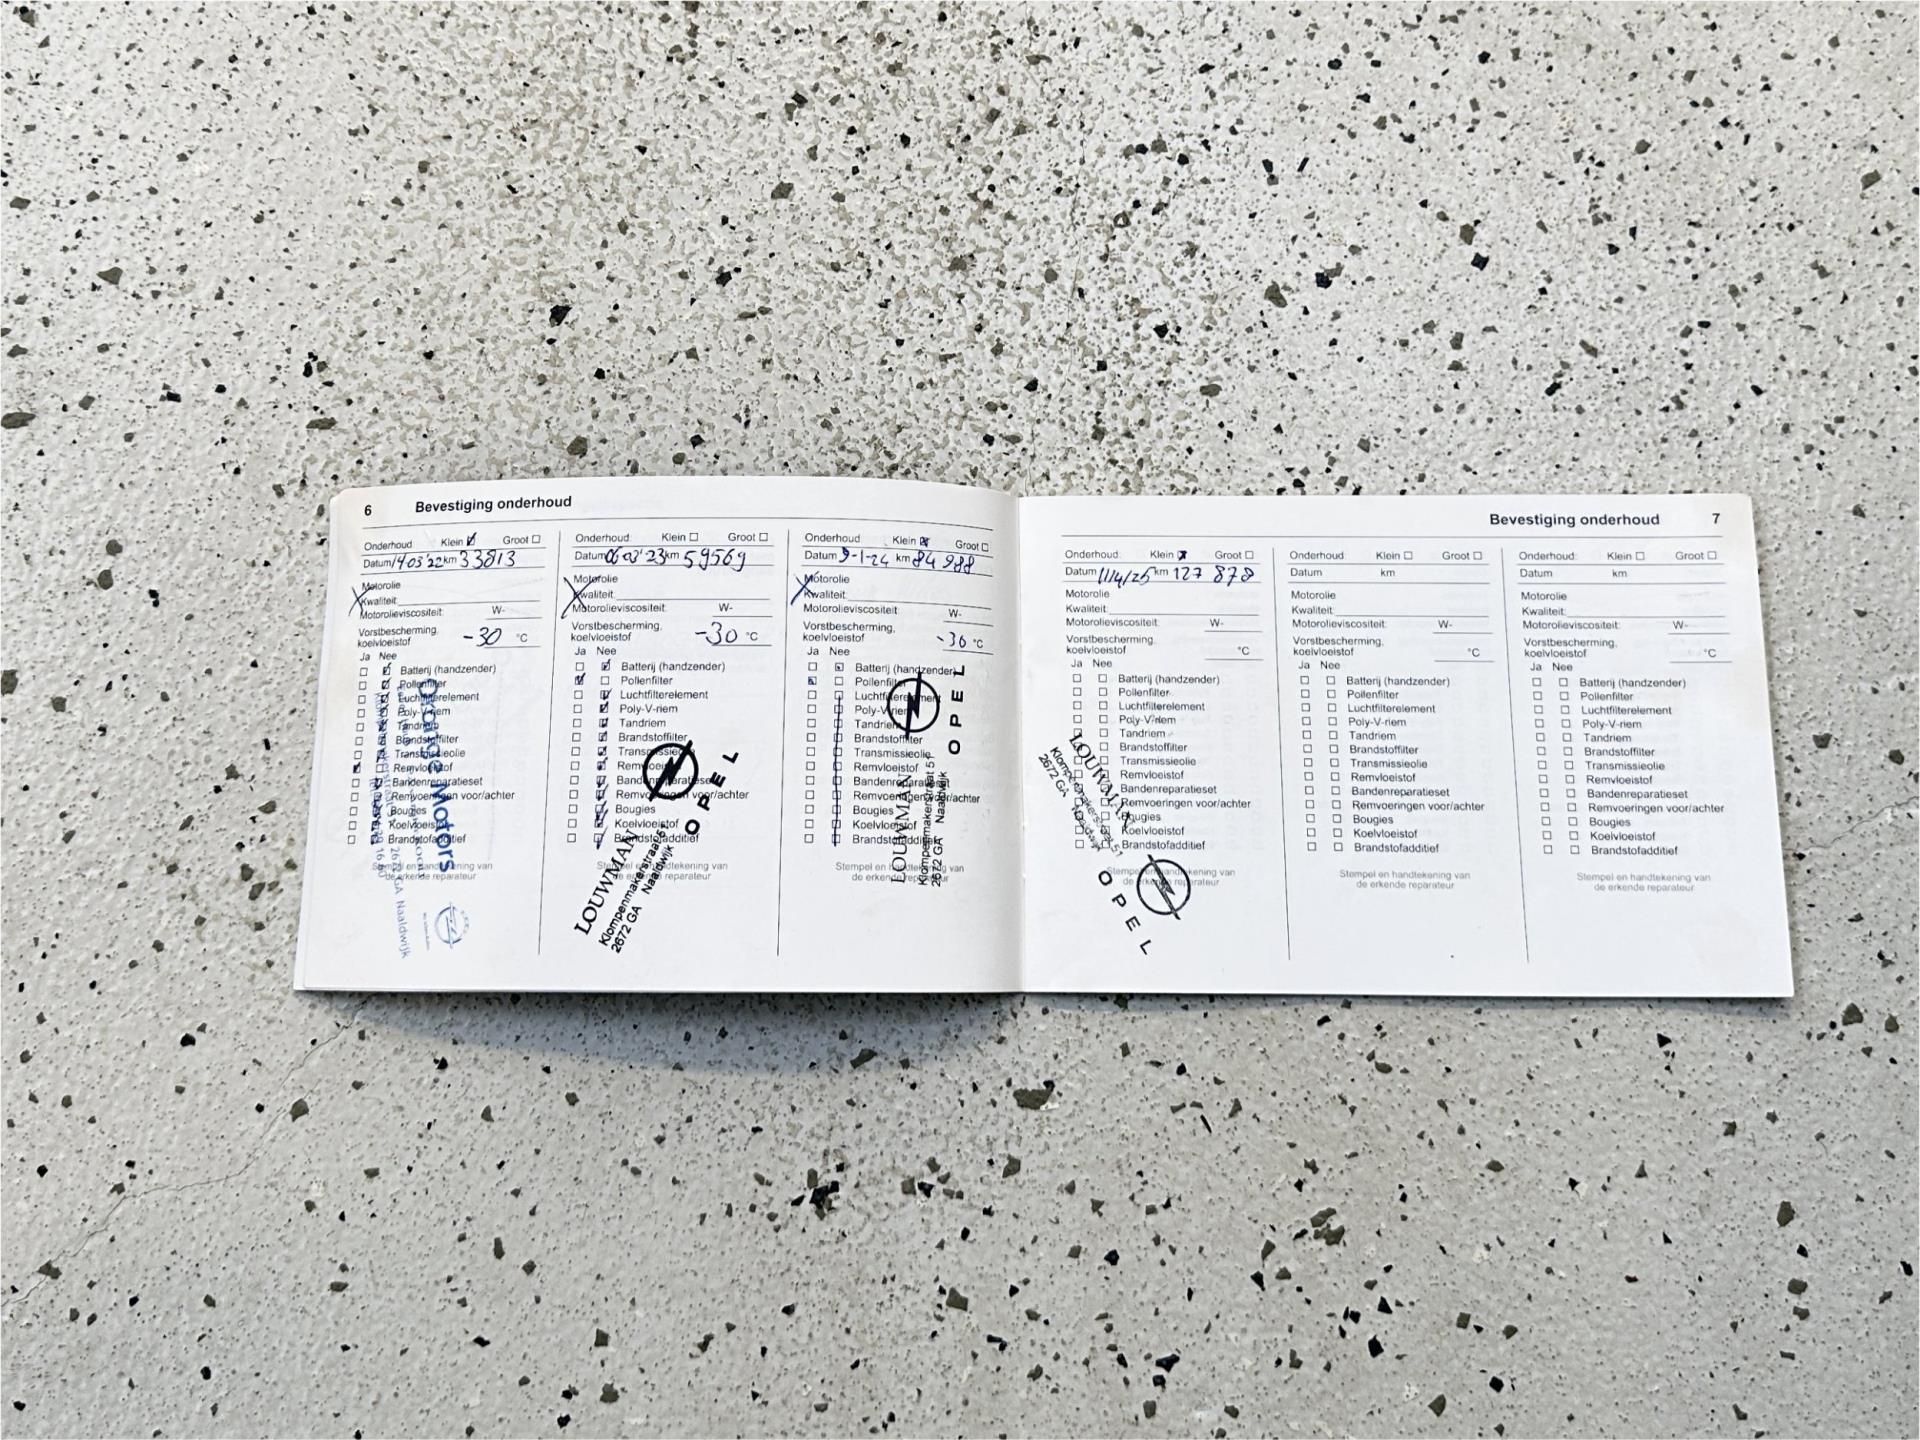 6 Bevestiging onderhoud
Onderhoud: Klein Groot
Datum 14 03 '22 km 33813
Motorolie
Kwaliteit:
Motorolieviscositeit: W-
Vorstbescherming,
koelvloeistof -30 °C
Ja Nee
Batterij (handzender)
Pollenfilter
Luchtfilterelement
Poly-V-riem
Tandriem
Brandstoffilter
Transmissieolie
Remvloeistof
Bandenreparatieset
Remvoeringen voor/achter
Bougies
Koelvloeistof
Brandstofadditief
Stempel en handtekening van
Orange Motors
2672 GA Naaldwijk
Onderhoud: Klein Groot
Datum 06 03 '23 km 59569
Motorolie
Kwaliteit:
Motorolieviscositeit: W-
Vorstbescherming,
koelvloeistof -30 °C
Ja Nee
Batterij (handzender)
Pollenfilter
Luchtfilterelement
Poly-V-riem
Tandriem
Brandstoffilter
Transmissieolie
Remvloeistof
Bandenreparatieset
Remvoeringen voor/achter
Bougies
Koelvloeistof
Brandstofadditief
Stempel en handtekening van
de erkende reparateur
OPEL
LOUWMAN
Klompenmakerstraat 51
2672 GA Naaldwijk
Onderhoud: Klein Groot
Datum 9-1-24 km 84 988
Motorolie
Kwaliteit:
Motorolieviscositeit: W-
Vorstbescherming,
koelvloeistof -30 °C
Ja Nee
Batterij (handzender)
Pollenfilter
Luchtfilterelement
Poly-V-riem
Tandriem
Brandstoffilter
Transmissieolie
Remvloeistof
Bandenreparatieset
Remvoeringen voor/achter
Bougies
Koelvloeistof
Brandstofadditief
Stempel en handtekening van
de erkende reparateur
OPEL
LOUWMAN
Klompenmakerstraat 51
2672 GA Naaldwijk
Bevestiging onderhoud 7
Onderhoud: Klein Groot
Datum 11/4/25 km 127 878
Motorolie
Kwaliteit:
Motorolieviscositeit: W-
Vorstbescherming,
koelvloeistof °C
Ja Nee
Batterij (handzender)
Pollenfilter
Luchtfilterelement
Poly-V-riem
Tandriem
Brandstoffilter
Transmissieolie
Remvloeistof
Bandenreparatieset
Remvoeringen voor/achter
Bougies
Koelvloeistof
Brandstofadditief
Stempel en handtekening van
de erkende reparateur
LOUWMAN
Klompenmakerstraat 51
2672 GA Naaldwijk
OPEL
Onderhoud: Klein Groot
Datum km
Motorolie
Kwaliteit:
Motorolieviscositeit: W-
Vorstbescherming,
koelvloeistof °C
Ja Nee
Batterij (handzender)
Pollenfilter
Luchtfilterelement
Poly-V-riem
Tandriem
Brandstoffilter
Transmissieolie
Remvloeistof
Bandenreparatieset
Remvoeringen voor/achter
Bougies
Koelvloeistof
Brandstofadditief
Stempel en handtekening van
de erkende reparateur
Onderhoud: Klein Groot
Datum km
Motorolie
Kwaliteit:
Motorolieviscositeit: W-
Vorstbescherming,
koelvloeistof °C
Ja Nee
Batterij (handzender)
Pollenfilter
Luchtfilterelement
Poly-V-riem
Tandriem
Brandstoffilter
Transmissieolie
Remvloeistof
Bandenreparatieset
Remvoeringen voor/achter
Bougies
Koelvloeistof
Brandstofadditief
Stempel en handtekening van
de erkende reparateur